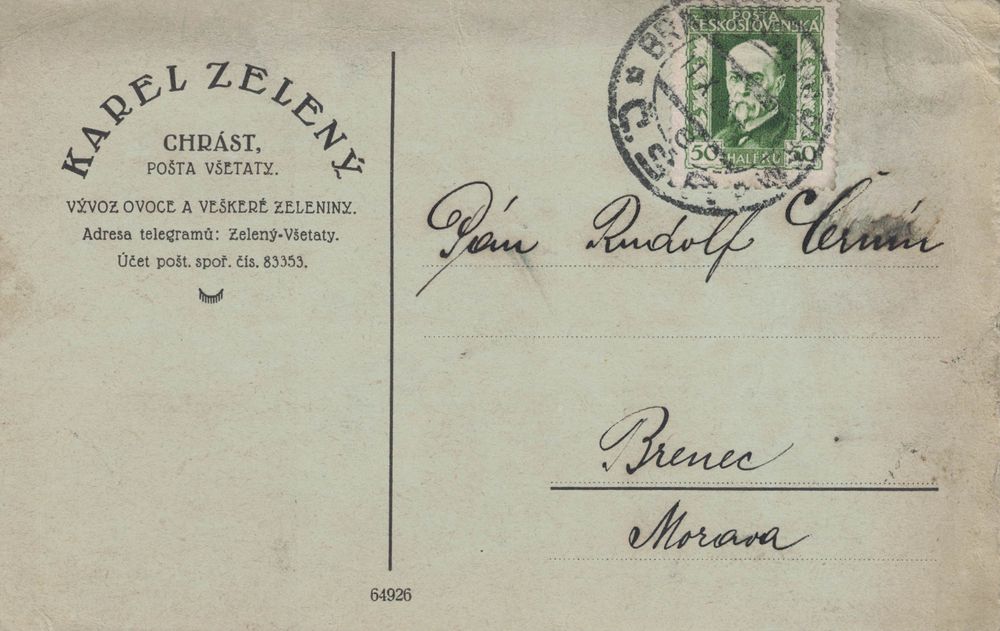 KAREL ZELENÝ
CHRÁST,
POŠTA VŠETATY.
VÝVOZ OVOCE A VEŠKERÉ ZELENINY.
Adresa telegramů: Zelený-Všetaty.
Účet pošt. spoř. čís. 83353.
POŠTA
ČESKOSLOVENSKÁ
50 HALÉŘŮ 50
Pán Rudolf
Brenec
Morava
64926